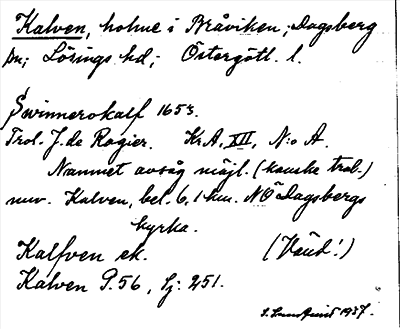 Kalven, holme i Bråviken; Dagsberg
sn; Lösings hd; Östergötl. l.
Swinnerokalf 1653.
Trol. J. de Rogier. Kr.A, XII, N:o A.
Namnet avsåg möjl. (kanske trol.)
nuv. Kalven, bel. 6,1 km. NÖ Dagsbergs
kyrka.
Kalfven ek. (Vänd!)
Kalven P. 56, Sj: 251.
1937.